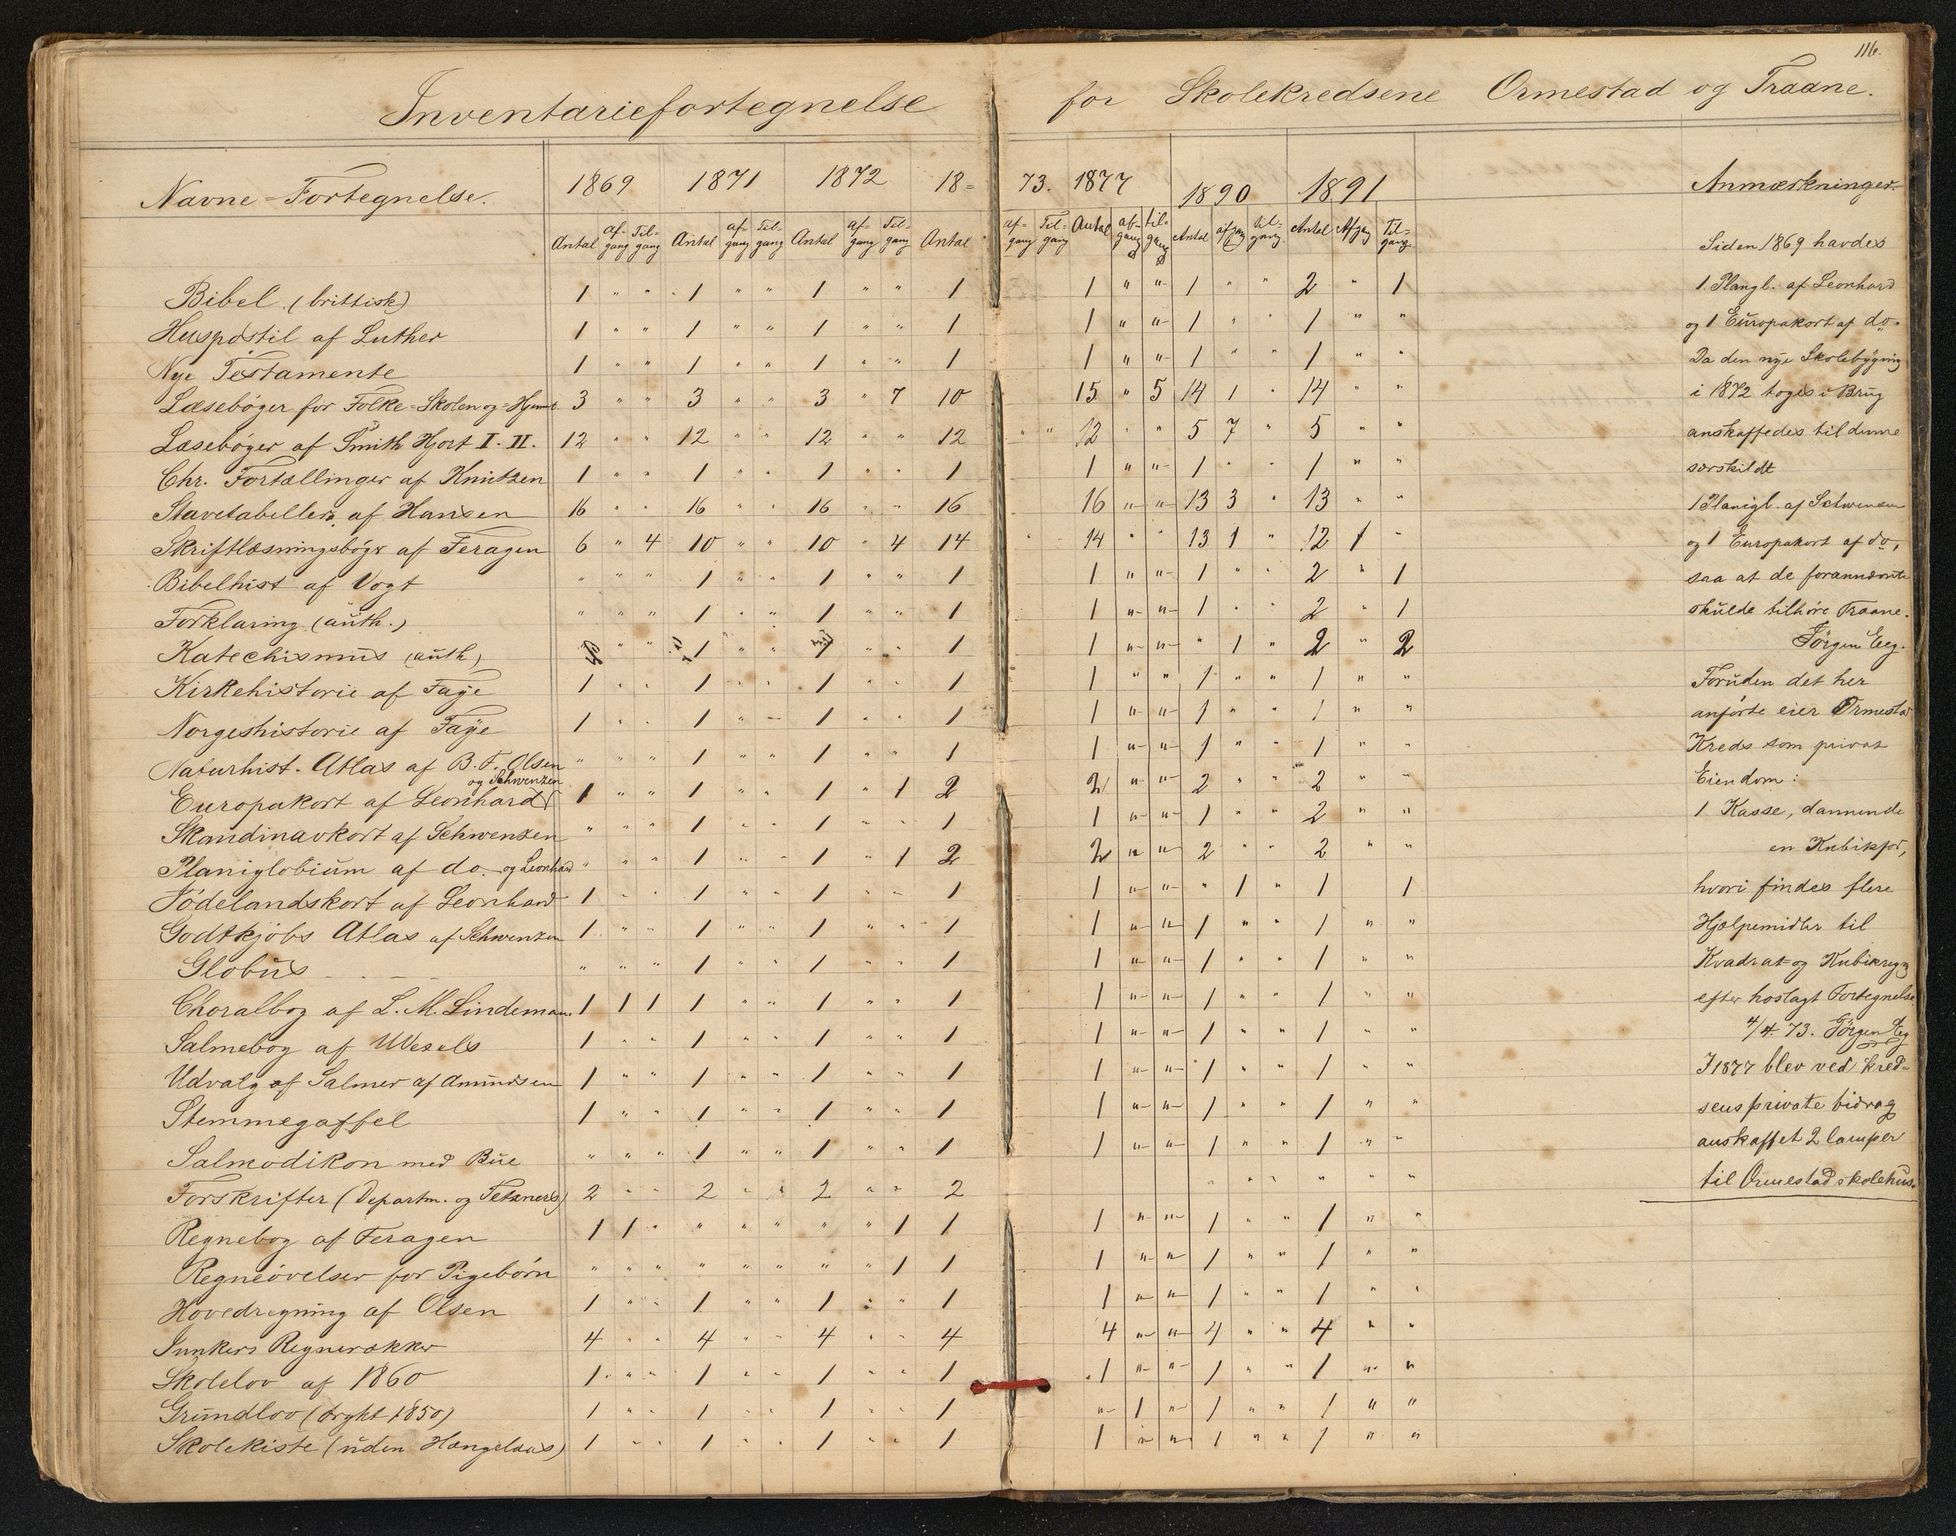 116.
Inventariefortegnelse for Skolekredsene Ormestad og Traane.
Navne-Fortegnelse. 1869 1871 1872 18= 73. 1877 1890 1891 Anmærkninger
Antal af-gang Til-gang Antal af-gang Til-gang Antal af-gang Til-gang Antal af-gang Til-gang Antal af-gang til-gang Antal afgang til-gang Antal Afgang Til-gang
Bibel (brittisk) 1 " " 1 " " 1 " " 1 1 " " 1 " " 2 " 1
Huspostil af Luther 1 " " 1 " " 1 " " 1 1 " " 1 " " 1 " "
Nye Testamente 1 " " 1 " " 1 " " 1 1 " " 1 " " 1 " "
Læsebøger for Folke=Skolen og=Hjemt 3 " " 3 " " 3 " 7 10 15 " 5 14 1 " 14 " "
Læsebøger af Smith Hjort I. II. 12 " " 12 " " 12 " " 12 " " 12 " " 5 7 " 5 " "
Chr. Fortællinger af Knutzen 1 " " 1 " " 1 " " 1 1 " " 1 " " 1 " "
Stavetabeller af Hansen 16 " " 16 " " 16 " " 16 16 " " 13 3 " 13 " "
Skriftlæsningsbøgr af Feragen 6 " 4 10 " " 10 " 4 14 " 14 " " 13 1 " 12 1 "
Bibelhist af Vogt " " " 1 " " 1 " " 1 1 " " 1 " " 2 " 1
Forklaring (auth.) " " " 1 " " 1 " " 1 1 " " 1 " " 2 " 1
Katechismus (auth) " " 1 " " 1 " " 1 1 " " " 1 " 2 " 2
Kirkehistorie af Faye 1 " " 1 " " 1 " " 1 1 " " 1 " " 1 " "
Norgeshistorie af Faye 1 " " 1 " " 1 " " 1 1 " " 1 " " 1 " "
Naturhist. Atlas af B. F. Olsen " " " 1 " " 1 " " 1 1 " " 1 " " 1 " "
og Schwenzen
Europakort af Leonhard 1 " " 1 " " 1 " 1 2 2 " " 2 " " 2 " "
Skandinavkort af Schwenzen " " " 1 " " 1 " " 1 1 " " 1 " " 2 " "
Planiglobium af do. og Leonhard " " " 1 " " 1 " 1 2 2 " " 2 " " 2 " "
Jødelandskort af Leonhard 1 " " 1 " " 1 " " 1 1 " " " 1 " 1 1
Godtkjøbs Atlas af Schwenzen 1 " " 1 " " 1 " " 1 1 " " 1 " " 1 " "
Globus " " " 1 " " 1 " " 1 1 " " 1 " " 1 " "
Choralbog af L. M. Lindeman 1 1 1 1 " " 1 " " 1 1 " " 1 " " 1 " "
Salmebog af Wexels 1 " " 1 " " 1 " " 1 1 " " 1 " " 1 " "
Udvalg af Salmer af Amundsen 1 " " 1 " " 1 " " 1 1 " " 1 " " 1 " "
Stemmegaffel 1 " " 1 " " 1 " " 1 1 " " 1 " " 1 " "
Salmodikon med Bue " " " 1 " " 1 " " 1 1 " " 1 " " 1 " "
Forskrifter (Departm. og Tetzners) 2 " " 2 " " 2 " " 2 " " " " " "
Regnebog af Feragen 1 1 " " " " " " 1 1 1 " " 1 " " 1 " "
Regneøvelser for Pigebørn " " " " " " " " 1 1 1 " " 1 " " 1 " "
Hovedregning af Olsen 1 " " 1 " " 1 " " 1 1 " " 1 " " 1 " "
Junkers Regnerækker 4 " " 4 " " 4 " " 4 4 " " 4 " " 4 " "
Skolelov af 1860 1 " " 1 " " 1 " " 1 1 " " 1 " " 1 " "
Grundlov (trykt 1850) 1 " " 1 " " 1 " " 1 " 1 " 1 " " 1 " "
Skolekiste (uden Hængelaas) 1 " " 1 " " 1 " " 1 1 " " 1 " " 1 " "
Siden 1869 havdes
1 Plangl. af Leonhard
og 1 Europakort af do.
Da den nye Skolebygning
i 1872 toges i Brug
anskaffedes til denne
særskildt
1 Planigl. af Schwensen
og 1 Europakort af do,
saa at de forannævnte
skulde tilhøre Traane.
Jørgen Eeg.
Foruden det her
anførte eier Ormestad
Kreds som privat
Eiendom:
1 Kasse, dannende
en Kubikfod,
hvori findes flere
Hjælpemidler til
Kvadrat- og Kubikregng
efter hoslagt Fortegnelse
4/4. 73. Jørgen Eeg
I 1877 blev ved kred-
sens private bidrag
anskaffet 2 lamper
til Ormestad skolehus.